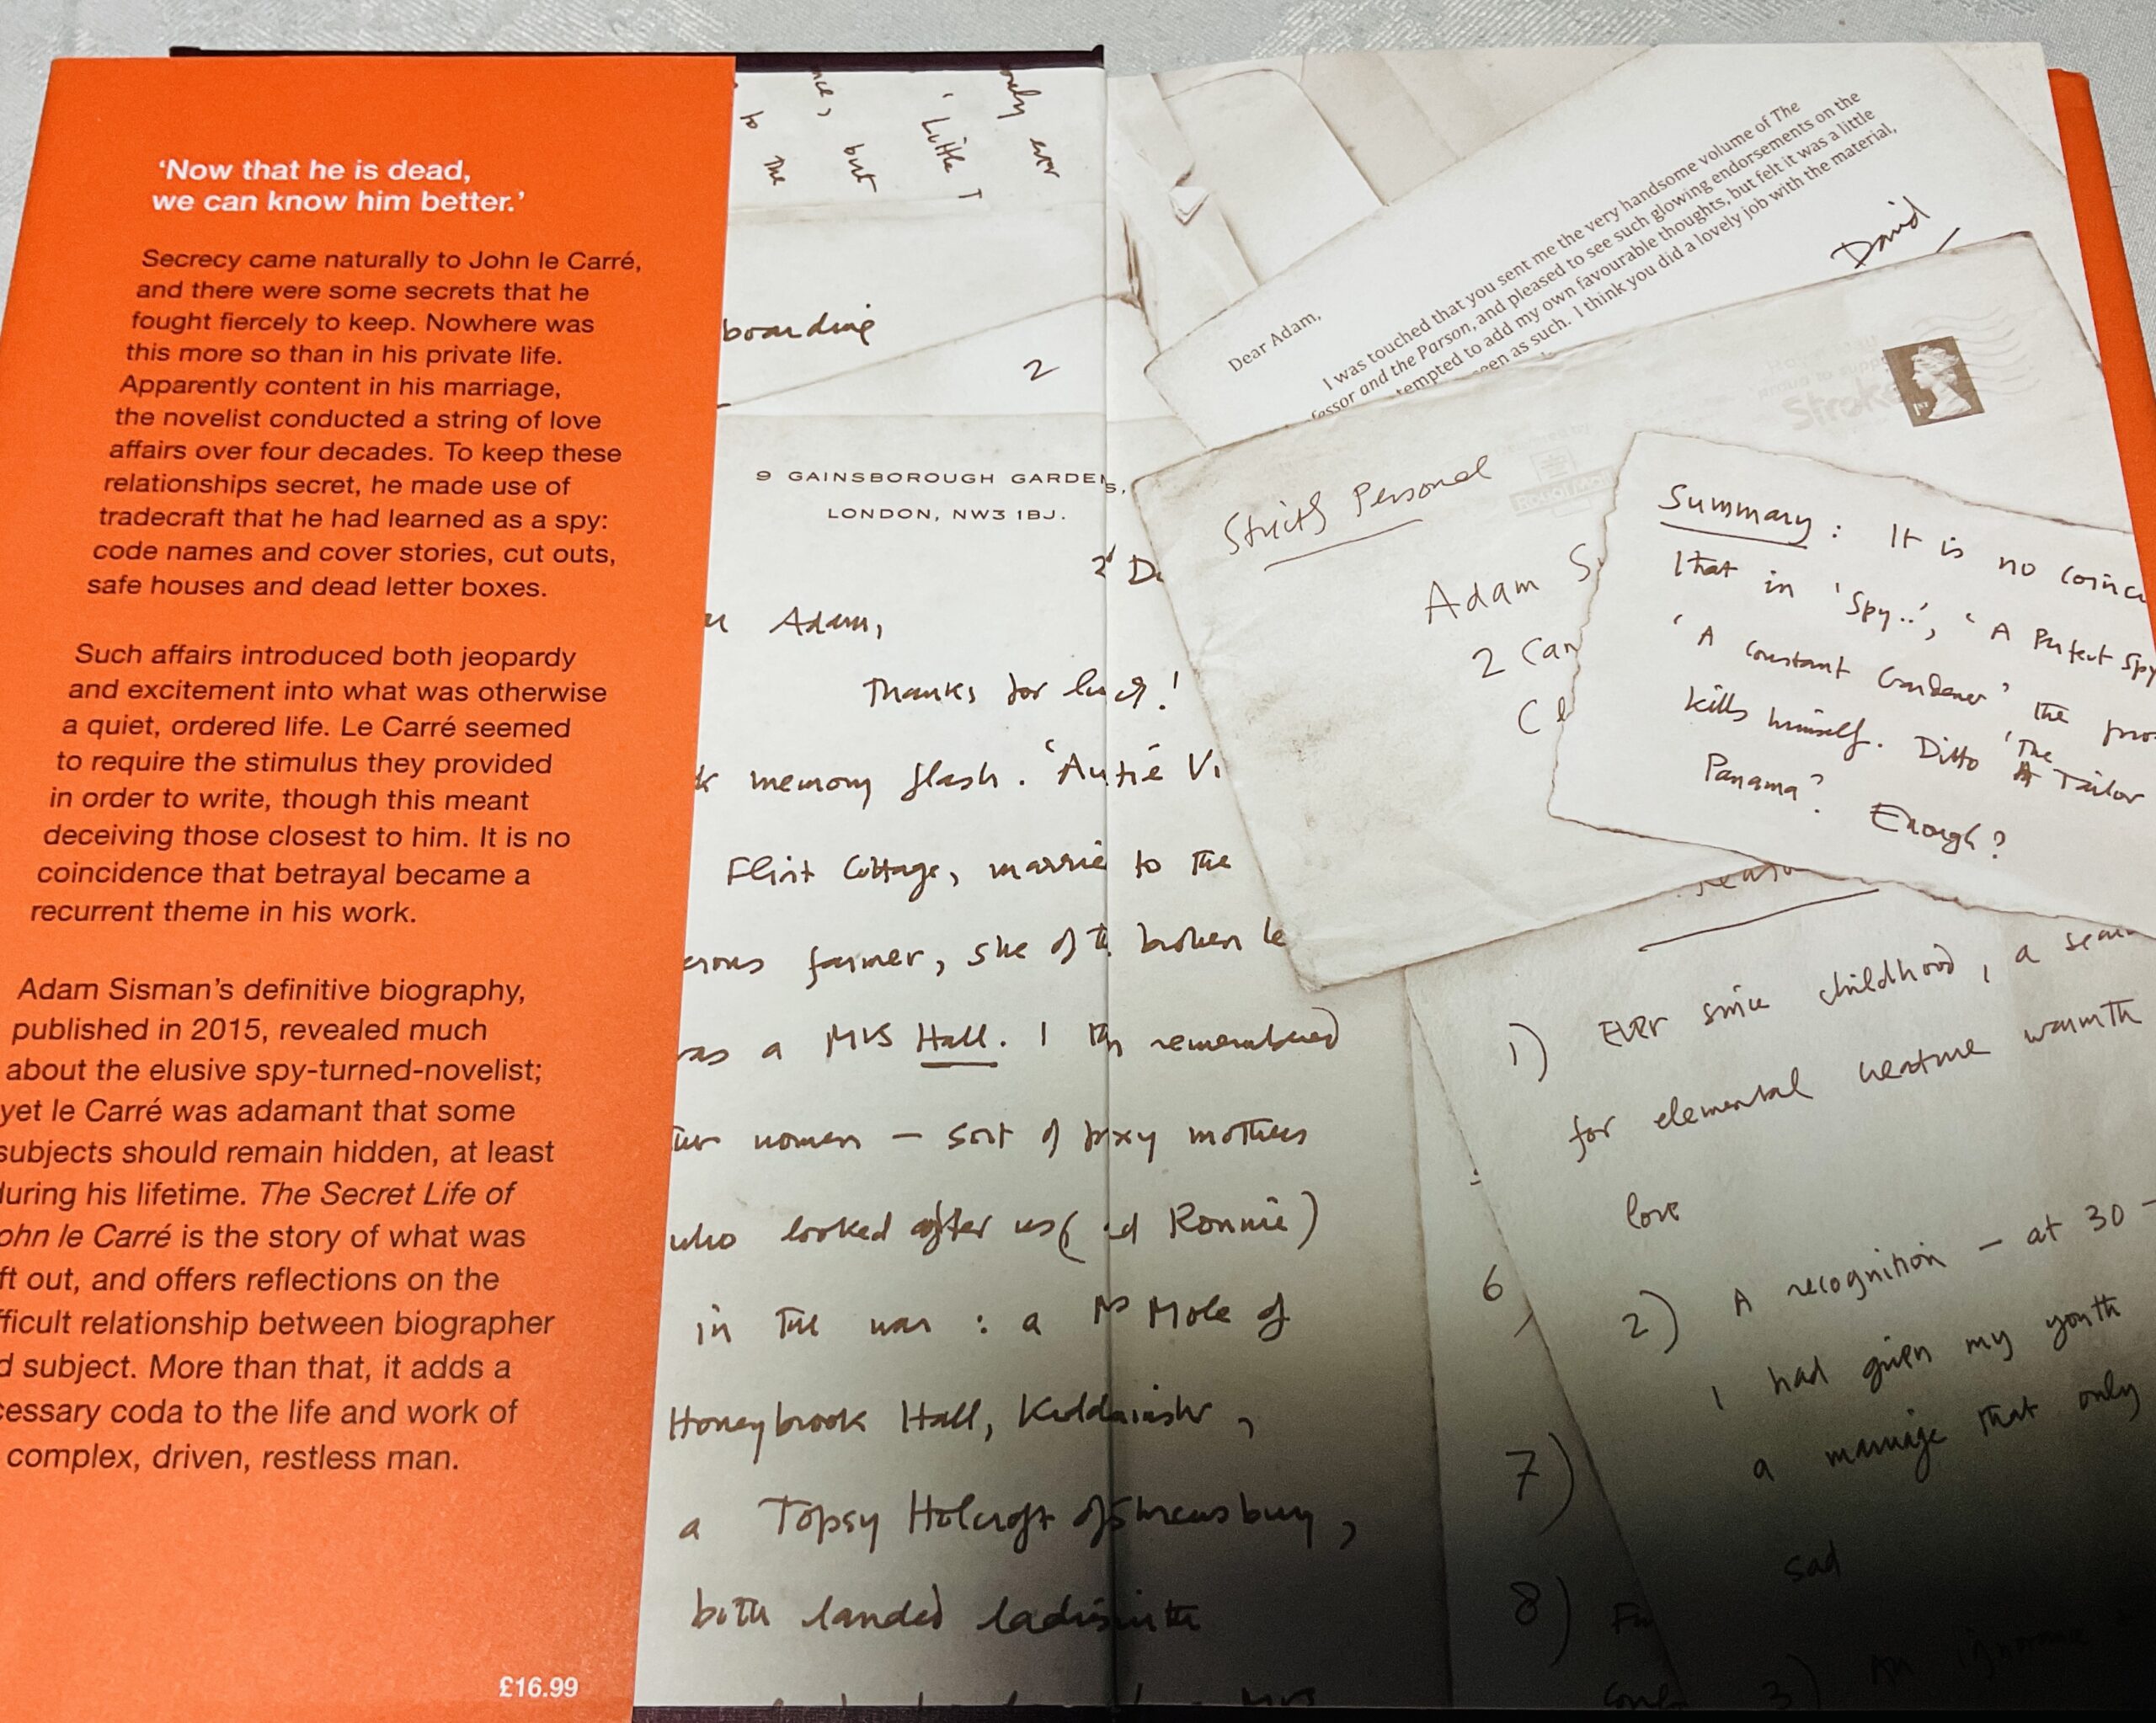 ‘Now that he is dead,
we can know him better.’
Secrecy came naturally to John le Carré,
and there were some secrets that he
fought fiercely to keep. Nowhere was
this more so than in his private life.
Apparently content in his marriage,
the novelist conducted a string of love
affairs over four decades. To keep these
relationships secret, he made use of
tradecraft that he had learned as a spy:
code names and cover stories, cut outs,
safe houses and dead letter boxes.
Such affairs introduced both jeopardy
and excitement into what was otherwise
a quiet, ordered life. Le Carré seemed
to require the stimulus they provided
in order to write, though this meant
deceiving those closest to him. It is no
coincidence that betrayal became a
recurrent theme in his work.
Adam Sisman’s definitive biography,
published in 2015, revealed much
about the elusive spy-turned-novelist;
yet le Carré was adamant that some
subjects should remain hidden, at least
during his lifetime. The Secret Life of
ohn le Carré is the story of what was
ft out, and offers reflections on the
fficult relationship between biographer
d subject. More than that, it adds a
cessary coda to the life and work of
complex, driven, restless man.
£16.99
only ever
' Little I
but
to the
boarding
2
9 GAINSBOROUGH GARDENS,
LONDON, NW3 1BJ.
2 D
Adam,
Thanks for lunch!
memory flash. 'Auntie Vi
Flint Cottage, married to the
farmer, she of the broken le
was a Mrs Hall. I then remembered
women — sort of proxy mothers
who looked after us (and Ronnie)
in the war : a Mrs Mole of
Honeybrook Hall,
a Topsy Holcroft of Shrewsbury,
both landed ladies with
Dear Adam,
I was touched that you sent me the very handsome volume of The
fessor and the Parson, and pleased to see such glowing endorsements on the
tempted to add my own favourable thoughts, but felt it was a little
seen as such. I think you did a lovely job with the material,
David
Strictly Personal
Adam S
2 Can
Cl
1ST
Summary: It is no coinc
that in 'Spy..', 'A Perfect Spy
'A Constant Gardener' the pro
kills himself. Ditto 'The Tailor
Panama'. Enough?
1) Ever since childhood, a sear
for elemental warmth
love
2) A recognition — at 30 —
I had given my youth
a marriage that only
sad
3) An ignorance
6
7)
8)